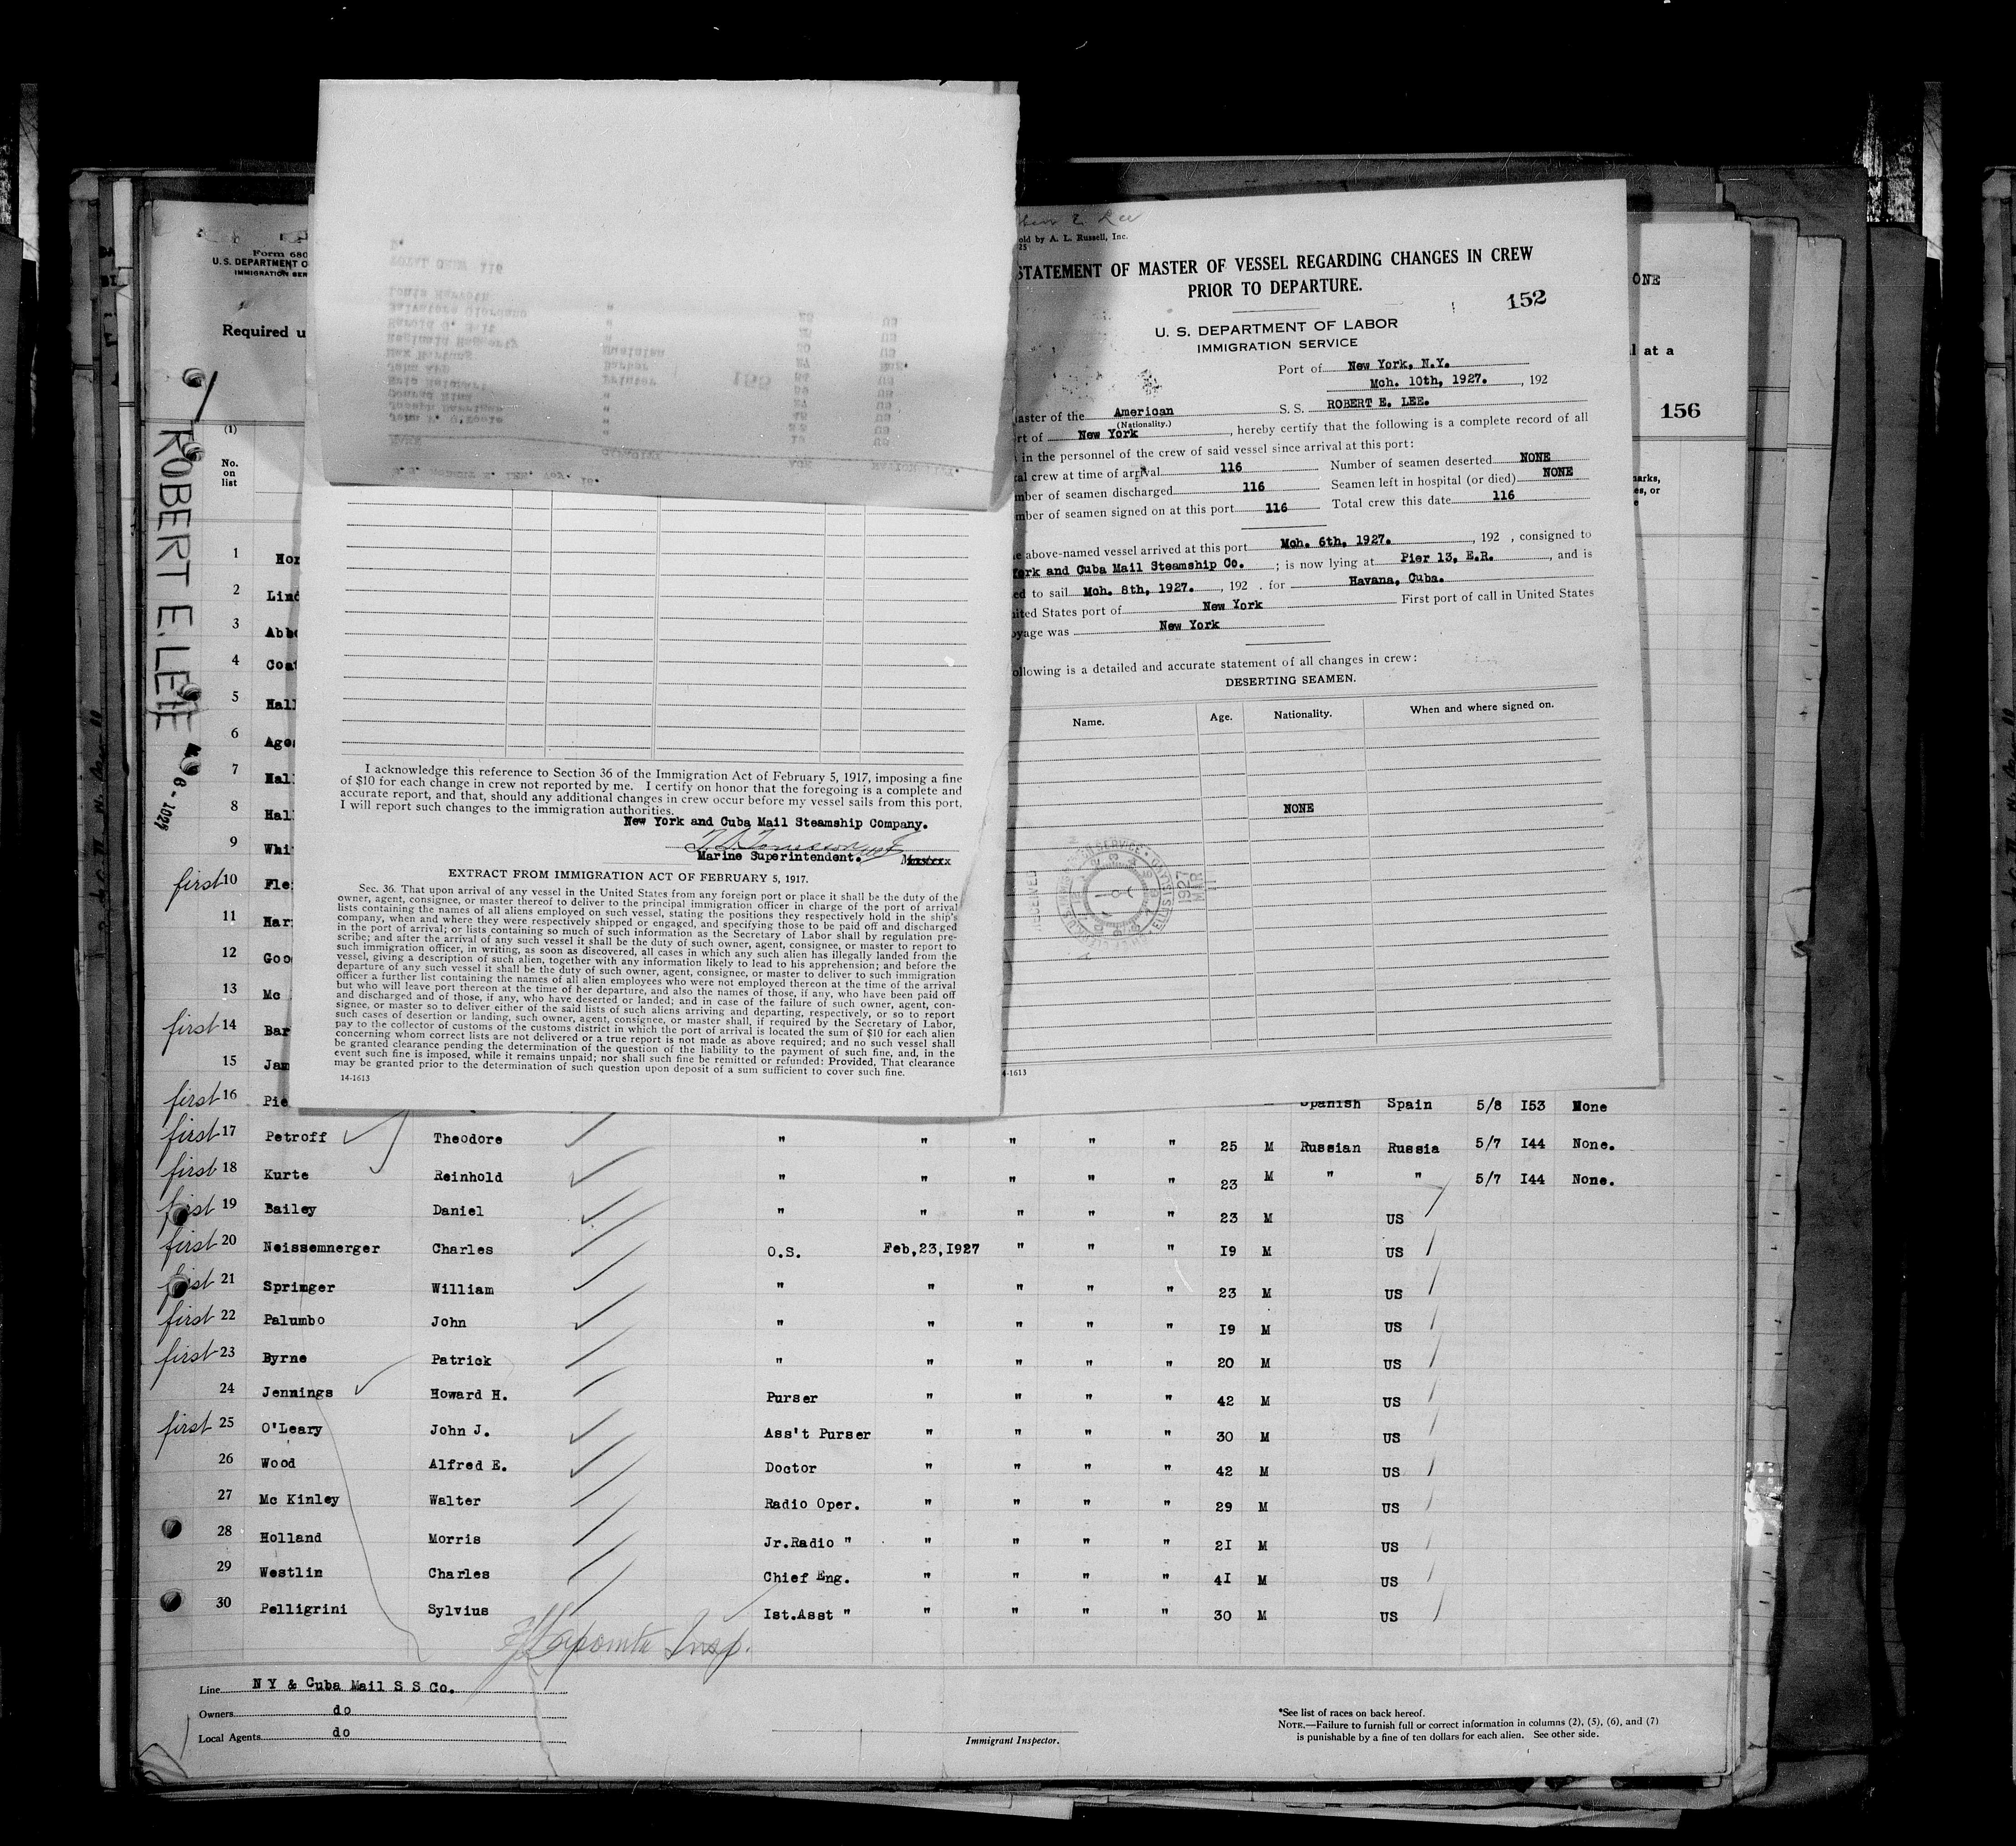 Form 680
U. S. DEPARTMENT O
IMMIGRATION SER
Required u
(1)
No.
on
list
ROBERT E. LEE
1
2 Lind
3 Abb
4 Coa
5 Hall
6 Age
7 Hal
8 Hal
9 Whi
first 10 Fle
11 Har
12 Goo
13 Mc
first 14 Bar
15 Jam
first 16 Pie Spanish Spain 5/8 I53 None
first 17 Petroff Theodore " " " " " 25 M Russian Russia 5/7 I44 None.
first 18 Kurte Reinhold " " " " " 23 M " " 5/7 I44 None.
first 19 Bailey Daniel " " " " " 23 M US
first 20 Neissemnerger Charles O.S. Feb,23,I927 " " " I9 M US
first 21 Springer William " " " " " 23 M US
first 22 Palumbo John " " " " " I9 M US
first 23 Byrne Patrick " " " " " 20 M US
24 Jennings Howard H. Purser " " " " 42 M US
first 25 O'Leary John J. Ass't Purser " " " " 30 M US
26 Wood Alfred E. Doctor " " " " 42 M US
27 Mc Kinley Walter Radio Oper. " " " " 29 M US
28 Holland Morris Jr.Radio " " " " " 2I M US
29 Westlin Charles Chief Eng. " " " " 4I M US
30 Pelligrini Sylvius Ist.Asst " " " " " 30 M US
Insp.
Line N Y & Cuba Mail S S Co.
Owners do
Local Agents do
Immigrant Inspector.
*See list of races on back hereof.
NOTE.—Failure to furnish full or correct information in columns (2), (5), (6), and (7)
is punishable by a fine of ten dollars for each alien. See other side.
I acknowledge this reference to Section 36 of the Immigration Act of February 5, 1917, imposing a fine
of $10 for each change in crew not reported by me. I certify on honor that the foregoing is a complete and
accurate report, and that, should any additional changes in crew occur before my vessel sails from this port,
I will report such changes to the immigration authorities.
New York and Cuba Mail Steamship Company.
Marine Superintendent.
EXTRACT FROM IMMIGRATION ACT OF FEBRUARY 5, 1917.
Sec. 36. That upon arrival of any vessel in the United States from any foreign port or place it shall be the duty of the
owner, agent, consignee, or master thereof to deliver to the principal immigration officer in charge of the port of arrival
lists containing the names of all aliens employed on such vessel, stating the positions they respectively hold in the ship's
company, when and where they were respectively shipped or engaged, and specifying those to be paid off and discharged
in the port of arrival; or lists containing so much of such information as the Secretary of Labor shall by regulation pre-
scribe; and after the arrival of any such vessel it shall be the duty of such owner, agent, consignee, or master to report to
such immigration officer, in writing, as soon as discovered, all cases in which any such alien has illegally landed from the
vessel, giving a description of such alien, together with any information likely to lead to his apprehension; and before the
departure of any such vessel it shall be the duty of such owner, agent, consignee, or master to deliver to such immigration
officer a further list containing the names of all alien employees who were not employed thereon at the time of the arrival
but who will leave port thereon at the time of her departure, and also the names of those, if any, who have been paid off
and discharged and of those, if any, who have deserted or landed; and in case of the failure of such owner, agent, con-
signee, or master so to deliver either of the said lists of such aliens arriving and departing, respectively, or so to report
such cases of desertion or landing, such owner, agent, consignee, or master shall, if required by the Secretary of Labor,
pay to the collector of customs of the customs district in which the port of arrival is located the sum of $10 for each alien
concerning whom correct lists are not delivered or a true report is not made as above required; and no such vessel shall
be granted clearance pending the determination of the question of the liability to the payment of such fine, and, in the
event such fine is imposed, while it remains unpaid; nor shall such fine be remitted or refunded: Provided, That clearance
may be granted prior to the determination of such question upon deposit of a sum sufficient to cover such fine.
14-1613
old by A. L. Russell, Inc.
25
STATEMENT OF MASTER OF VESSEL REGARDING CHANGES IN CREW
PRIOR TO DEPARTURE.
152
U. S. DEPARTMENT OF LABOR
IMMIGRATION SERVICE
Port of New York, N.Y.
Mch. 10th, 1927. , 192
aster of the American S. S. ROBERT E. LEE.
(Nationality.)
rt of New York , hereby certify that the following is a complete record of all
in the personnel of the crew of said vessel since arrival at this port:
al crew at time of arrival 116 Number of seamen deserted NONE
mber of seamen discharged 116 Seamen left in hospital (or died) NONE
mber of seamen signed on at this port 116 Total crew this date 116
e above-named vessel arrived at this port Mch. 6th, 1927. , 192 , consigned to
York and Cuba Mail Steamship Co. ; is now lying at Pier 13, E.R. , and is
ed to sail Mch. 8th, 1927. , 192 . for Havana, Cuba.
ited States port of New York First port of call in United States
oyage was New York
ollowing is a detailed and accurate statement of all changes in crew:
DESERTING SEAMEN.
Name. Age. Nationality. When and where signed on.
NONE
4-1613
ONE
l at a
156
arks,
es, or
e